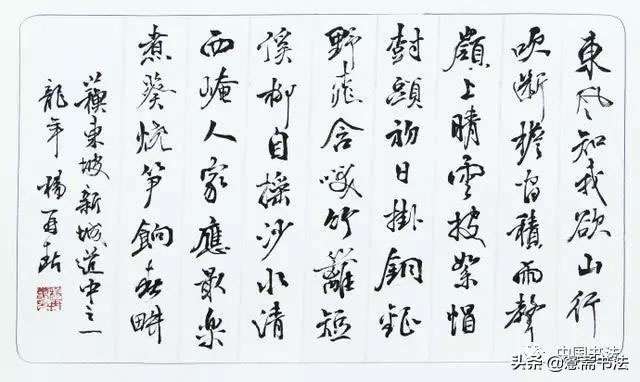 東风知我欲山行
吹斷檐間積雨聲
嶺上晴雲披絮帽
樹頭初日掛銅鉦
野桃含咲竹籬短
溪柳自摇沙水清
西崦人家應最樂
煮葵燒笋餉春畊
蘇東坡新城道中之一
龍年 楊再春
中国书法
头条 @斋书法